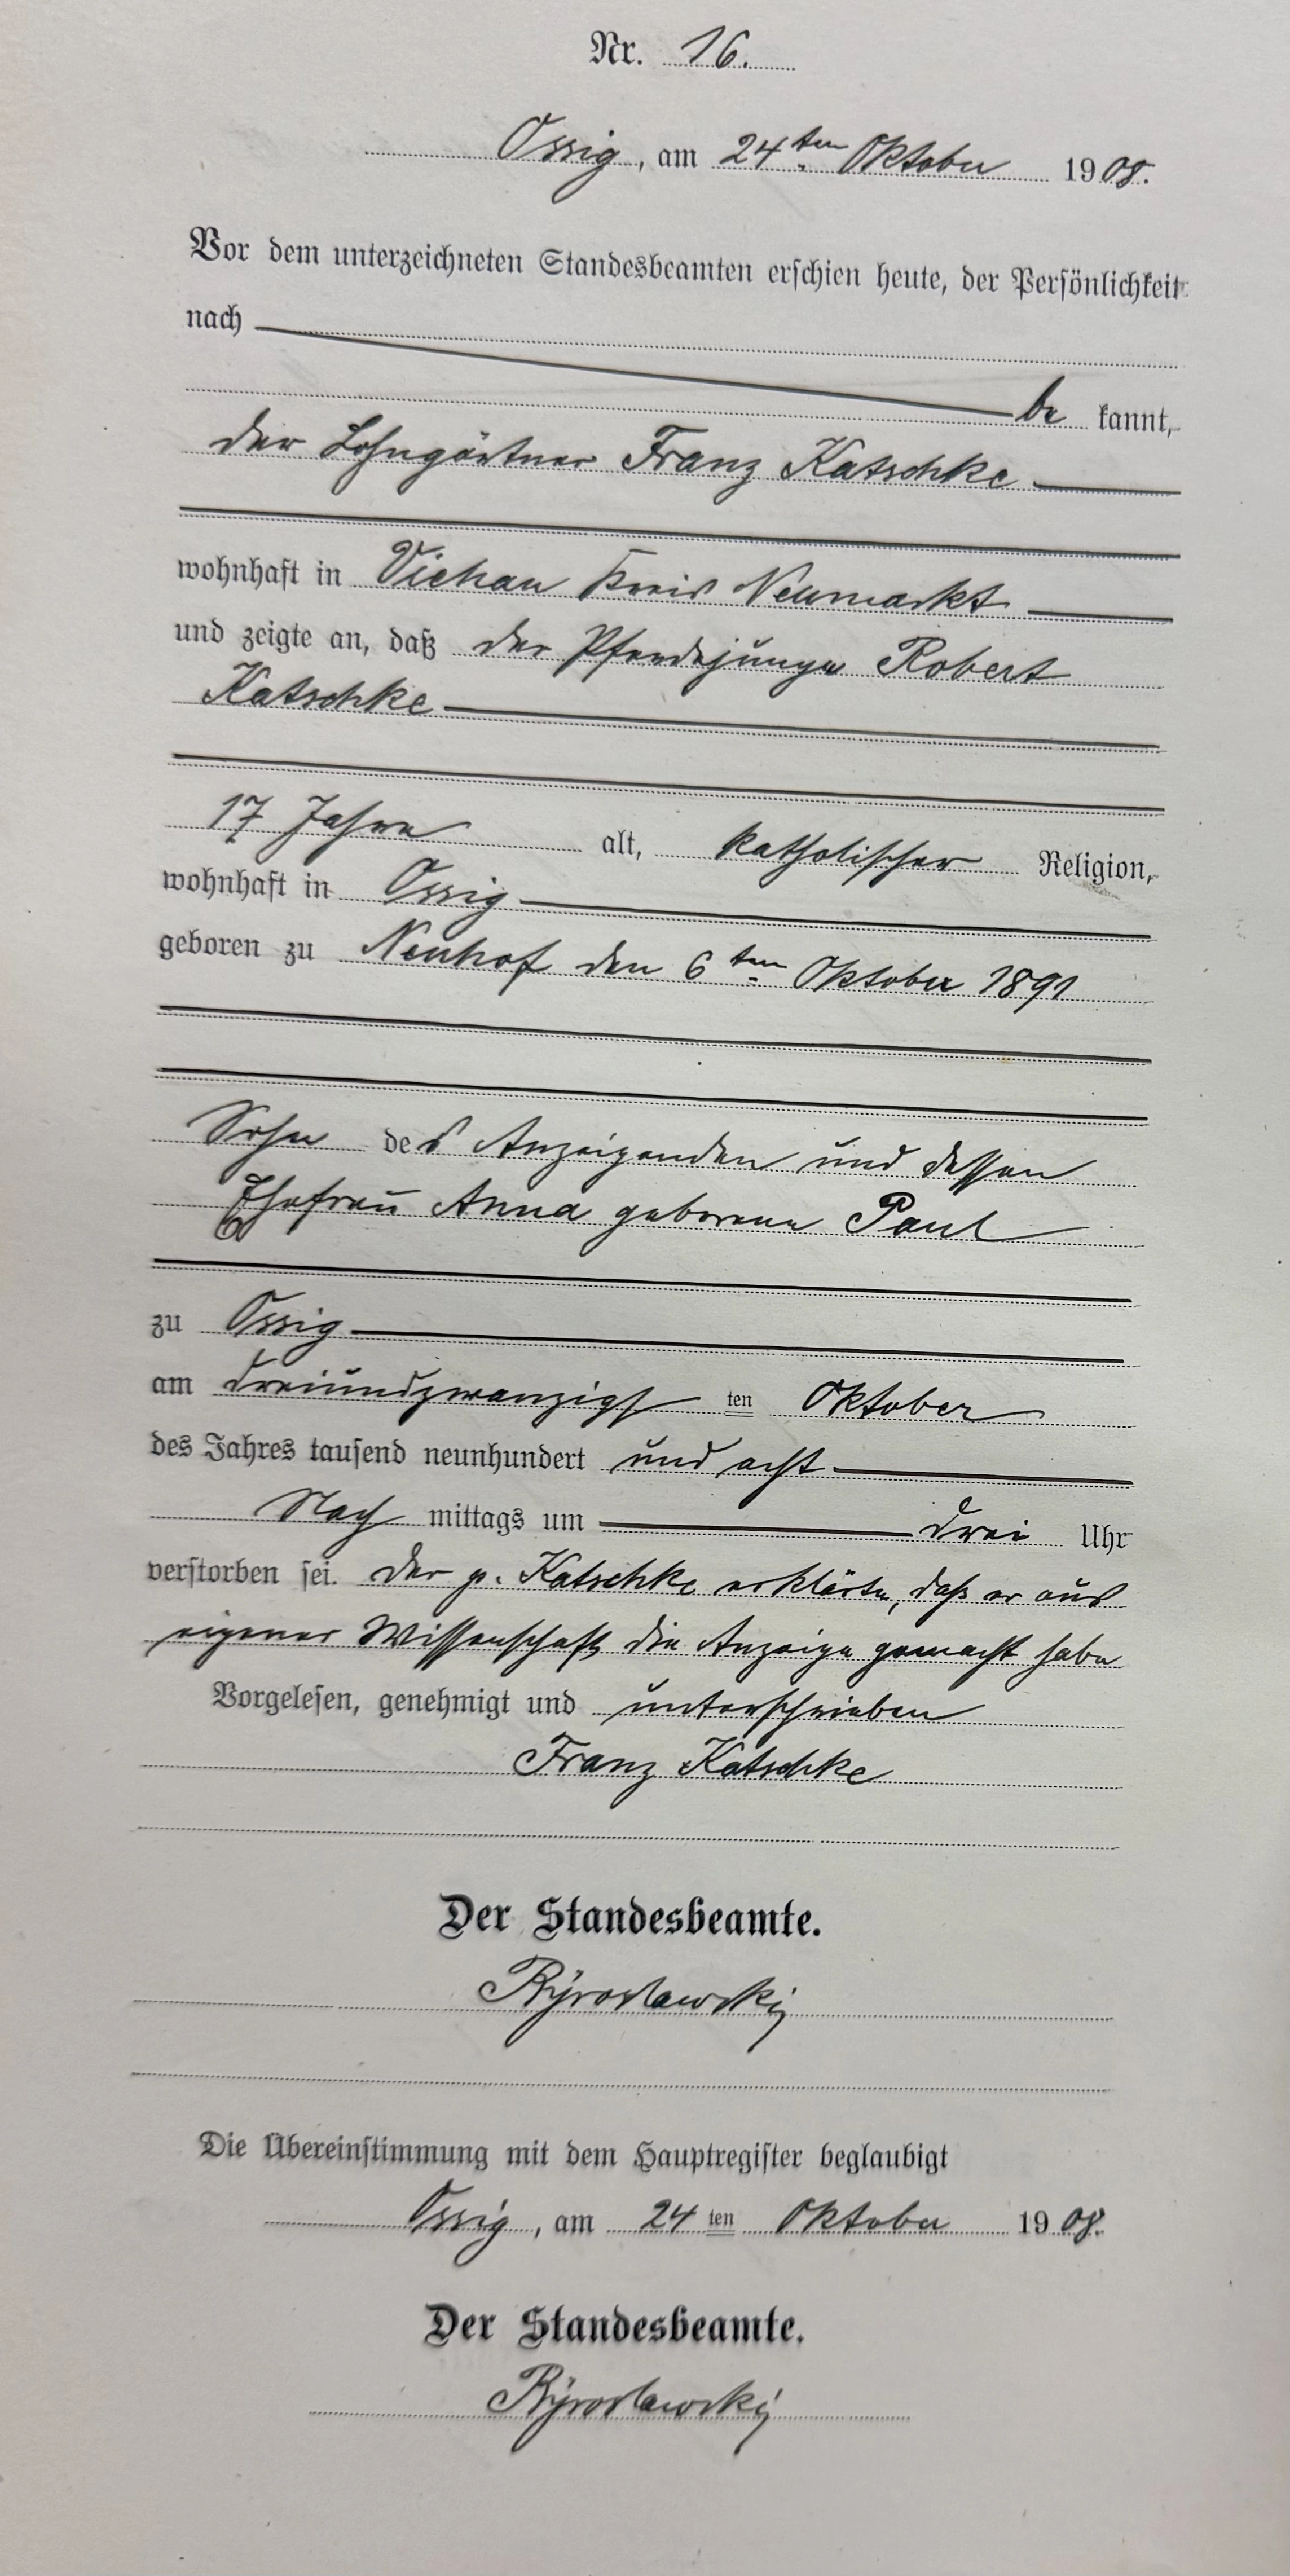 Nr. 16.
Ossig, am 24ten Oktober 1908.
Vor dem unterzeichneten Standesbeamten erschien heute, der Persönlichkeit
nach
be kannt,
der Lohngärtner Franz Katschke
wohnhaft in Viehau Kreis Neumarkt
und zeigte an, daß der Pferdejunge Robert
Katschke
17 Jahre alt, katholischer Religion,
wohnhaft in Ossig
geboren zu Neuhof den 6ten Oktober 1891
Sohn des Anzeigenden und dessen
Ehefrau Anna geborene Paul
zu Ossig
am dreiundzwanzigsten Oktober
des Jahres tausend neunhundert und acht
Nach mittags um drei Uhr
verstorben sei. Der p. Katschke erklärte, daß er aus
eigener Wissenschaft die Anzeige gemacht habe
Vorgelesen, genehmigt und unterschrieben
Franz Katschke
Der Standesbeamte.
Die Übereinstimmung mit dem Hauptregister beglaubigt
Ossig, am 24ten Oktober 1908.
Der Standesbeamte.